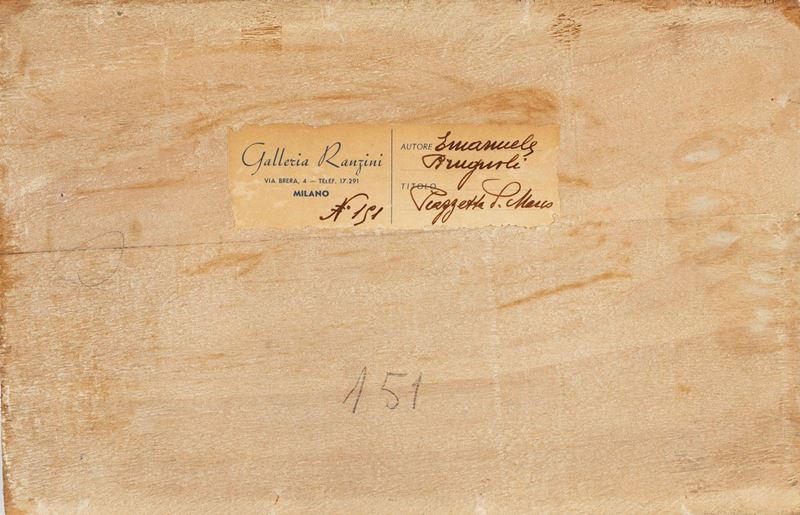 Galleria Ranzini
VIA BRERA, 4 — TELEF. 17.291
MILANO
N° 151
AUTORE Emanuele
Brugnoli
TITOLO
Piazzetta S. Marco
151